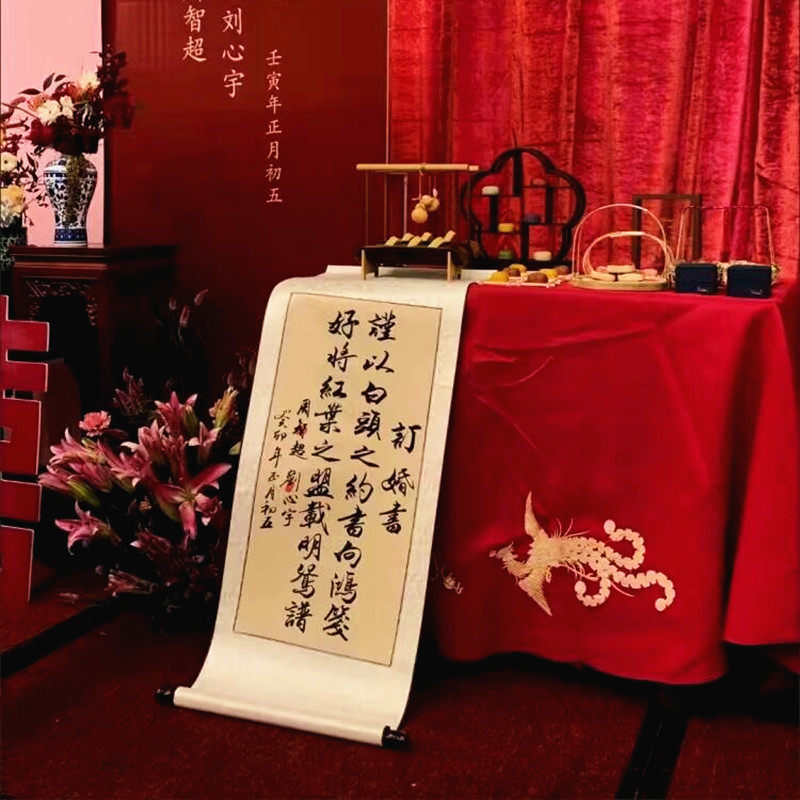 智超
刘心宇
壬寅年正月初五
訂婚書
謹以白頭之約書向鴻箋
好將紅葉之盟載明鴛譜
周智超 劉心宇
癸卯年正月初五